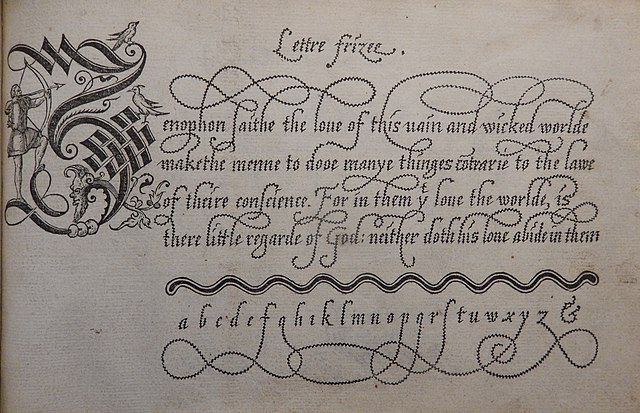 Lettre frizee.
Xenophon saithe the loue of this uain and wicked worlde
makethe menne to dooe manye thinges cōtrarie to the lawe
of theire conscience. For in them yͭ loue the worlde, is
there little regarde of God: neither doth his loue abide in them
a b c d e f g h i k l m n o p q r ſ t u w x y z &